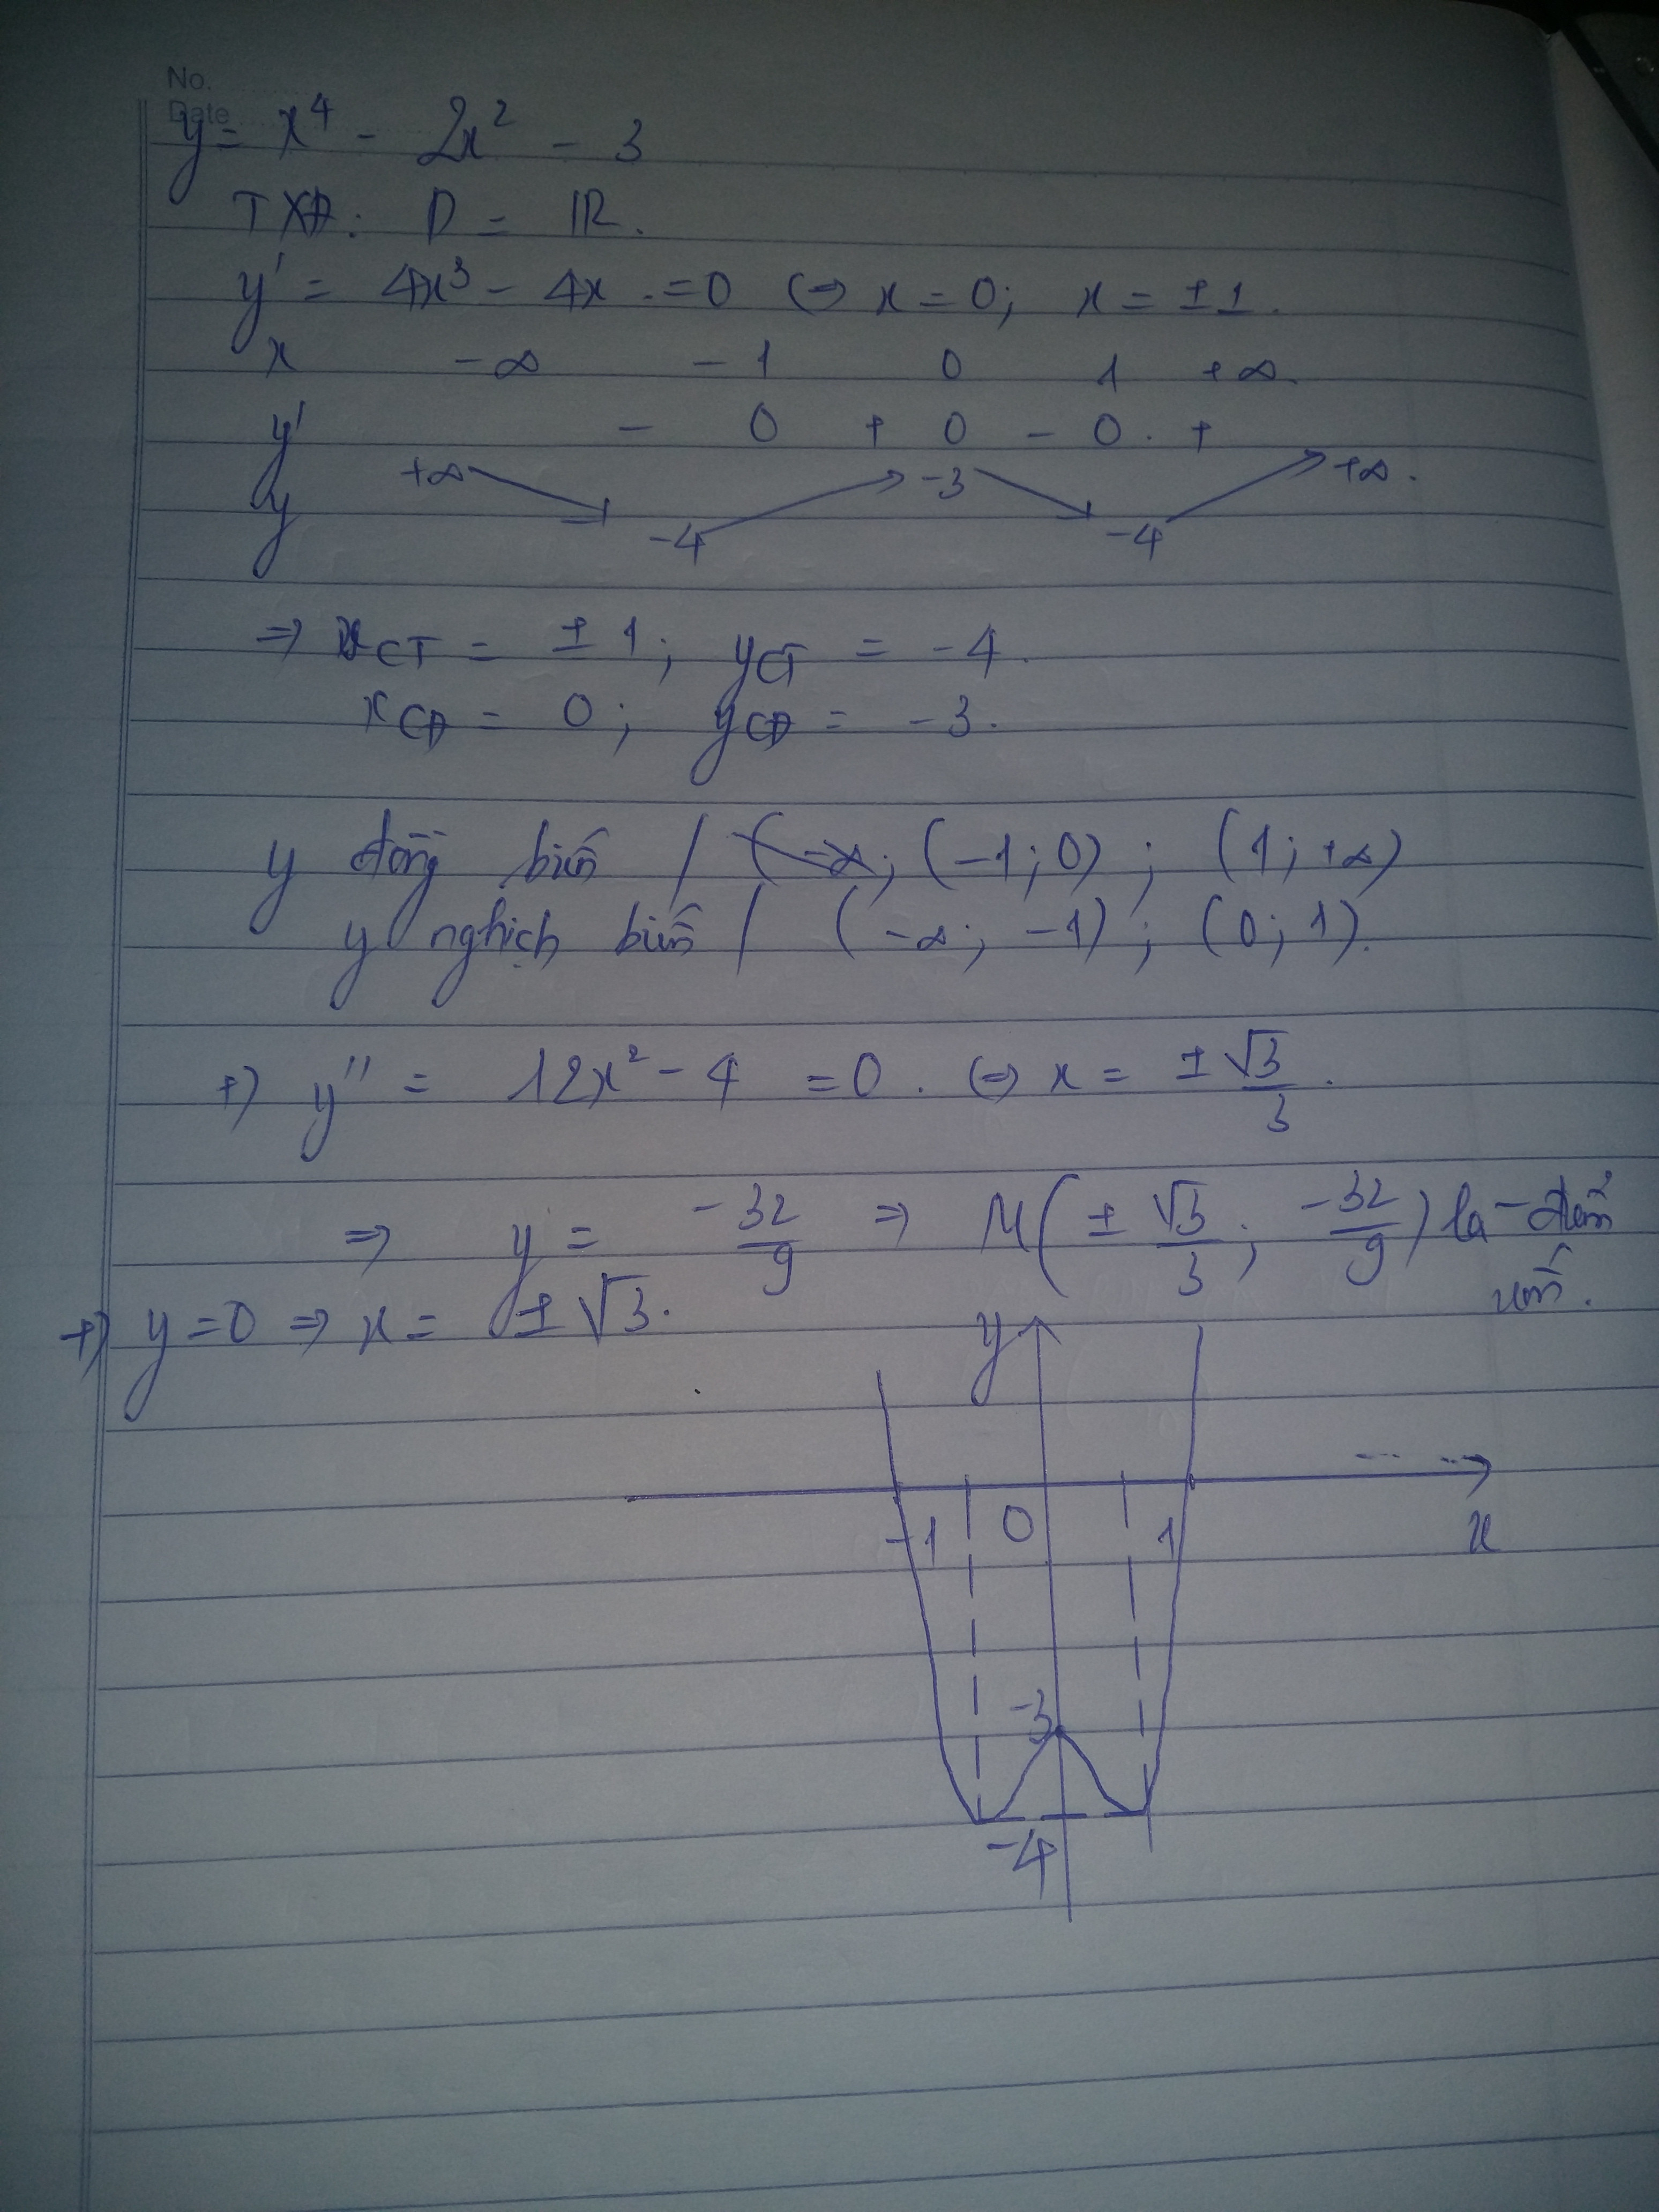 No.
Date
y = x⁴ - 2x² - 3
TXĐ: D = ℝ.
y' = 4x³ - 4x = 0 (=) x = 0; x = ±1.
x -∞ -1 0 1 +∞
y' - 0 + 0 - 0 +
y +∞ -4 -3 -4 +∞.
=> x_CT = ±1; y_CT = -4.
x_CĐ = 0; y_CĐ = -3.
y đồng biến / (-1; 0); (1; +∞)
y nghịch biến / (-∞; -1); (0; 1).
+) y'' = 12x² - 4 = 0. (=) x = ±√3/3.
=> y = -32/9 => M(±√3/3; -32/9) là điểm
uốn.
+) y = 0 => x = ±√3.
y
-1 0 1 x
-3
-4